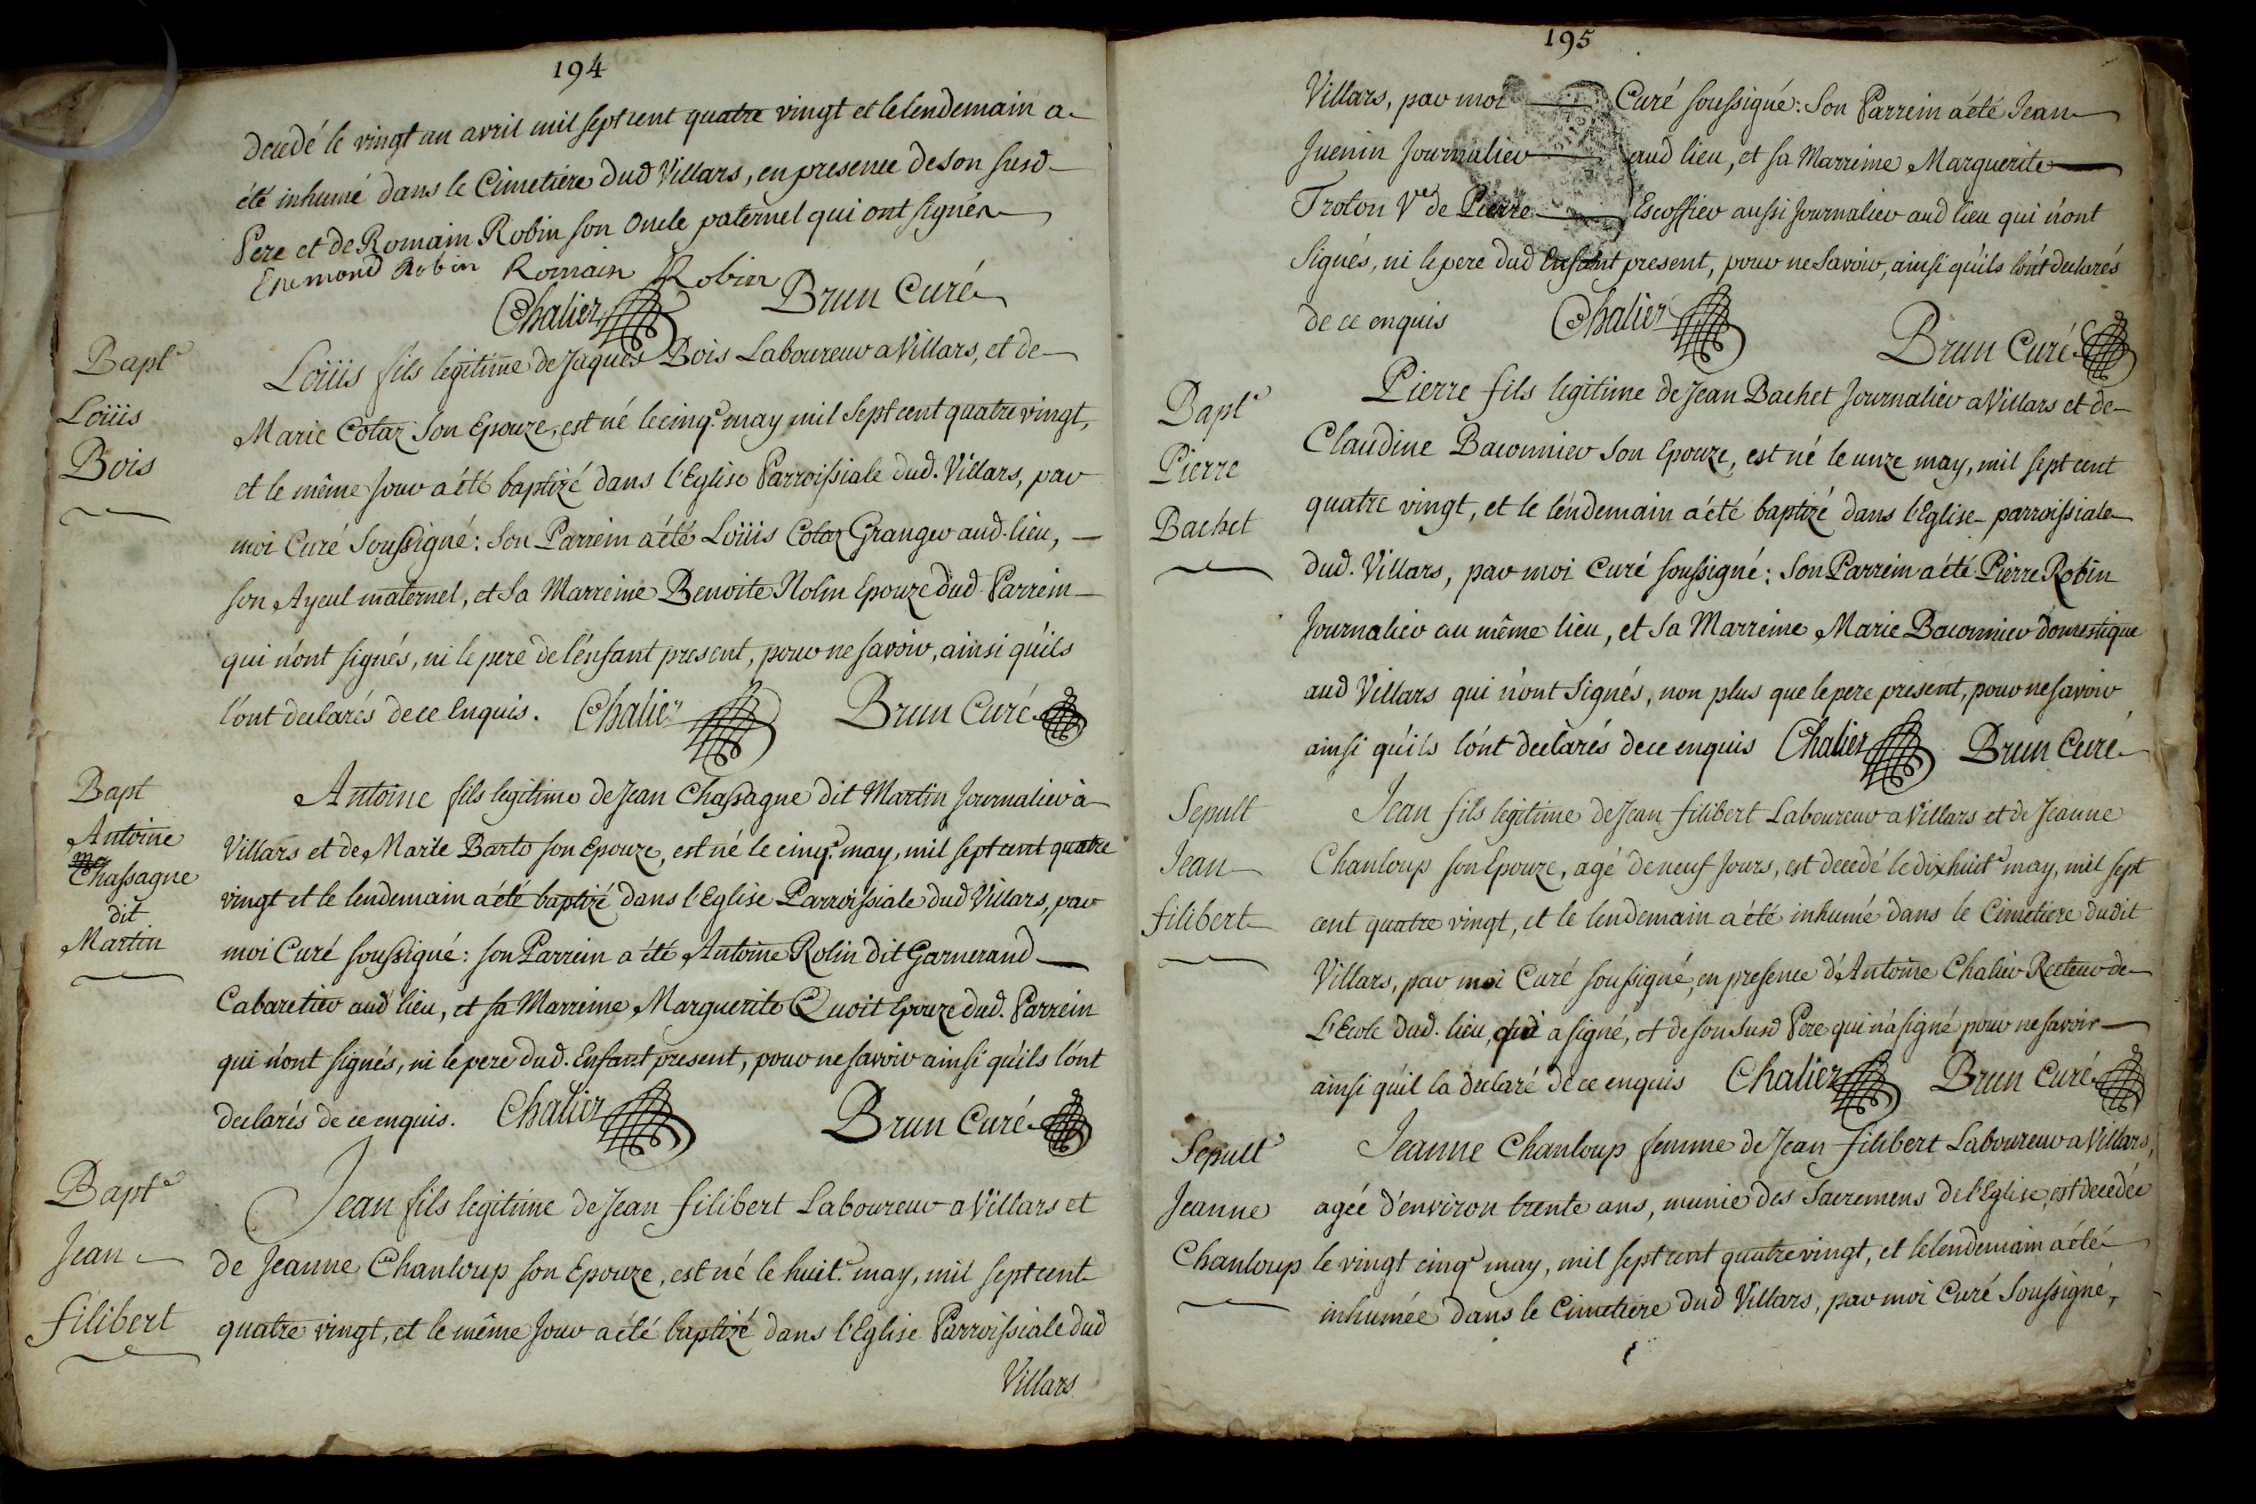 194
decedé le vingt un avril mil sept cent quatre vingt et le lendemain a
été inhumé dans le Cimetiere dud Villars, en presence de son susd
Pere et de Romain Robin son Oncle paternel qui ont signés
Enemond Robin Romain Robin
Chalier Brun Curé
Bapt.e
Loüis
Bois
Loüis fils legitime de Jaques Bois Laboureur a Villars, et de
Marie Cotaz son Epouze, est né le cinq.e may mil sept cent quatre vingt,
et le même Jour a été baptizé dans l'Eglise Parroissiale dud. Villars, par
moi Curé Soussigné : Son Parrein a été Loüis Cotaz Granger aud. lieu,
son Ayeul maternel, et sa Marreine Benoite Nolin Epouze dud Parrein
qui n'ont signés, ni le pere de l'enfant present, pour ne savoir, ainsi qu'ils
l'ont declarés de ce Enquis. Chalier Brun Curé
Bapt
Antoine
Chassagne
dit
Martin
Antoine fils legitime de Jean Chassagne dit Martin Journalier à
Villars et de Marie Barto son Epouze, est né le cinq.e may, mil sept cent quatre
vingt et le lendemain a été baptizé dans l'Eglise Parroissiale dud Villars, par
moi Curé soussigné : son Parrein a été Antoine Rolin dit Garnerand
Cabaretier aud lieu, et sa Marreine Marguerite Quoit Epouze dud. Parrein
qui n'ont signés, ni le pere dud. Enfant present, pour ne savoir ainsi qu'ils l'ont
declarés de ce enquis. Chalier Brun Curé
Bapt.e
Jean
filibert
Jean fils legitime de Jean filibert Laboureur a Villars et
de Jeanne Chanloup son Epouze, est né le huit.e may, mil sept cent
quatre vingt, et le même Jour a été baptizé dans l'Eglise Parroissiale dud
Villars
195
Villars, par moi Curé soussigné : Son Parrein a été Jean
Juenin Journalier aud lieu, et sa Marreine Marguerite
Troton V.e de Pierre Escoffier aussi Journalier aud lieu qui n'ont
signés, ni le pere dud Enfant present, pour ne savoir, ainsi qu'ils l'ont declarés
de ce enquis Chalier Brun Curé
Bapt.e
Pierre
Bachet
Pierre fils legitime de Jean Bachet Journalier a Villars et de
Claudine Baconnier son Epouze, est né le unze may, mil sept cent
quatre vingt, et le lendemain a été baptizé dans l'Eglise parroissiale
dud. Villars, par moi Curé soussigné : Son Parrein a été Pierre Robin
Journalier au même lieu, et sa Marreine Marie Baconnier domestique
aud Villars qui n'ont signés, non plus que le pere present, pour ne savoir
ainsi qu'ils l'ont declarés de ce enquis Chalier Brun Curé
Sepult
Jean
filibert
Jean fils legitime de Jean filibert Laboureur a Villars et de Jeanne
Chanloup son Epouze, agé de neuf Jours, est decedé le dixhuit.e may, mil sept
cent quatre vingt, et le lendemain a été inhumé dans le Cimetiere dudit
Villars, par moi Curé soussigné, en presence d'Antoine Chalier Recteur de
L'Ecole dud. lieu, qui a signé, et de son susd Pere qui n'a signé pour ne savoir
ainsi qu'il la declaré de ce enquis Chalier Brun Curé
Sepult.e
Jeanne
Chanloup
Jeanne Chanloup femme de Jean filibert Laboureur a Villars,
agée d'environ trente ans, munie des Sacremens de l'Eglise, est decedée
le vingt cinq.e may, mil sept cent quatre vingt, et le lendemain a été
inhumée dans le Cimetiere dud Villars, par moi Curé Soussigné,